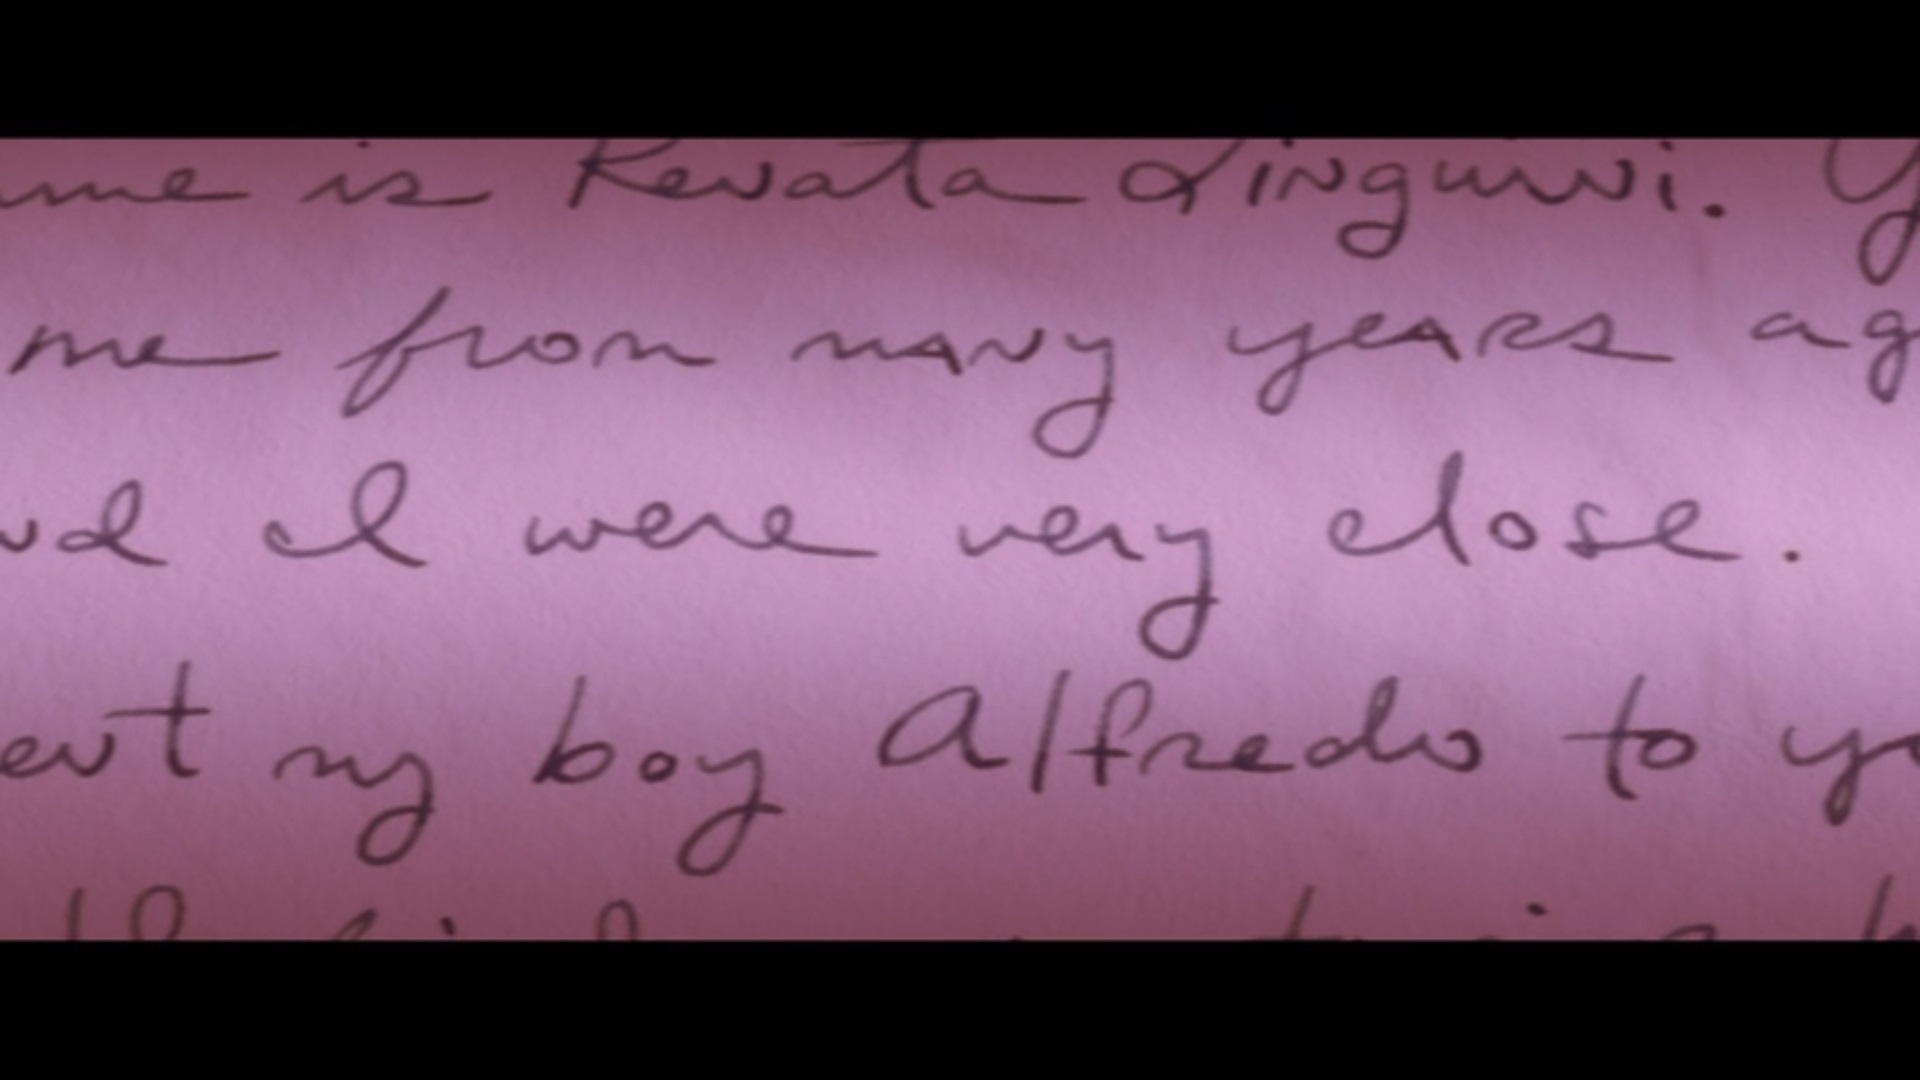 me is Renata Linguini. Y
me from many years ag
nd I were very close.
ent my boy Alfredo to yo